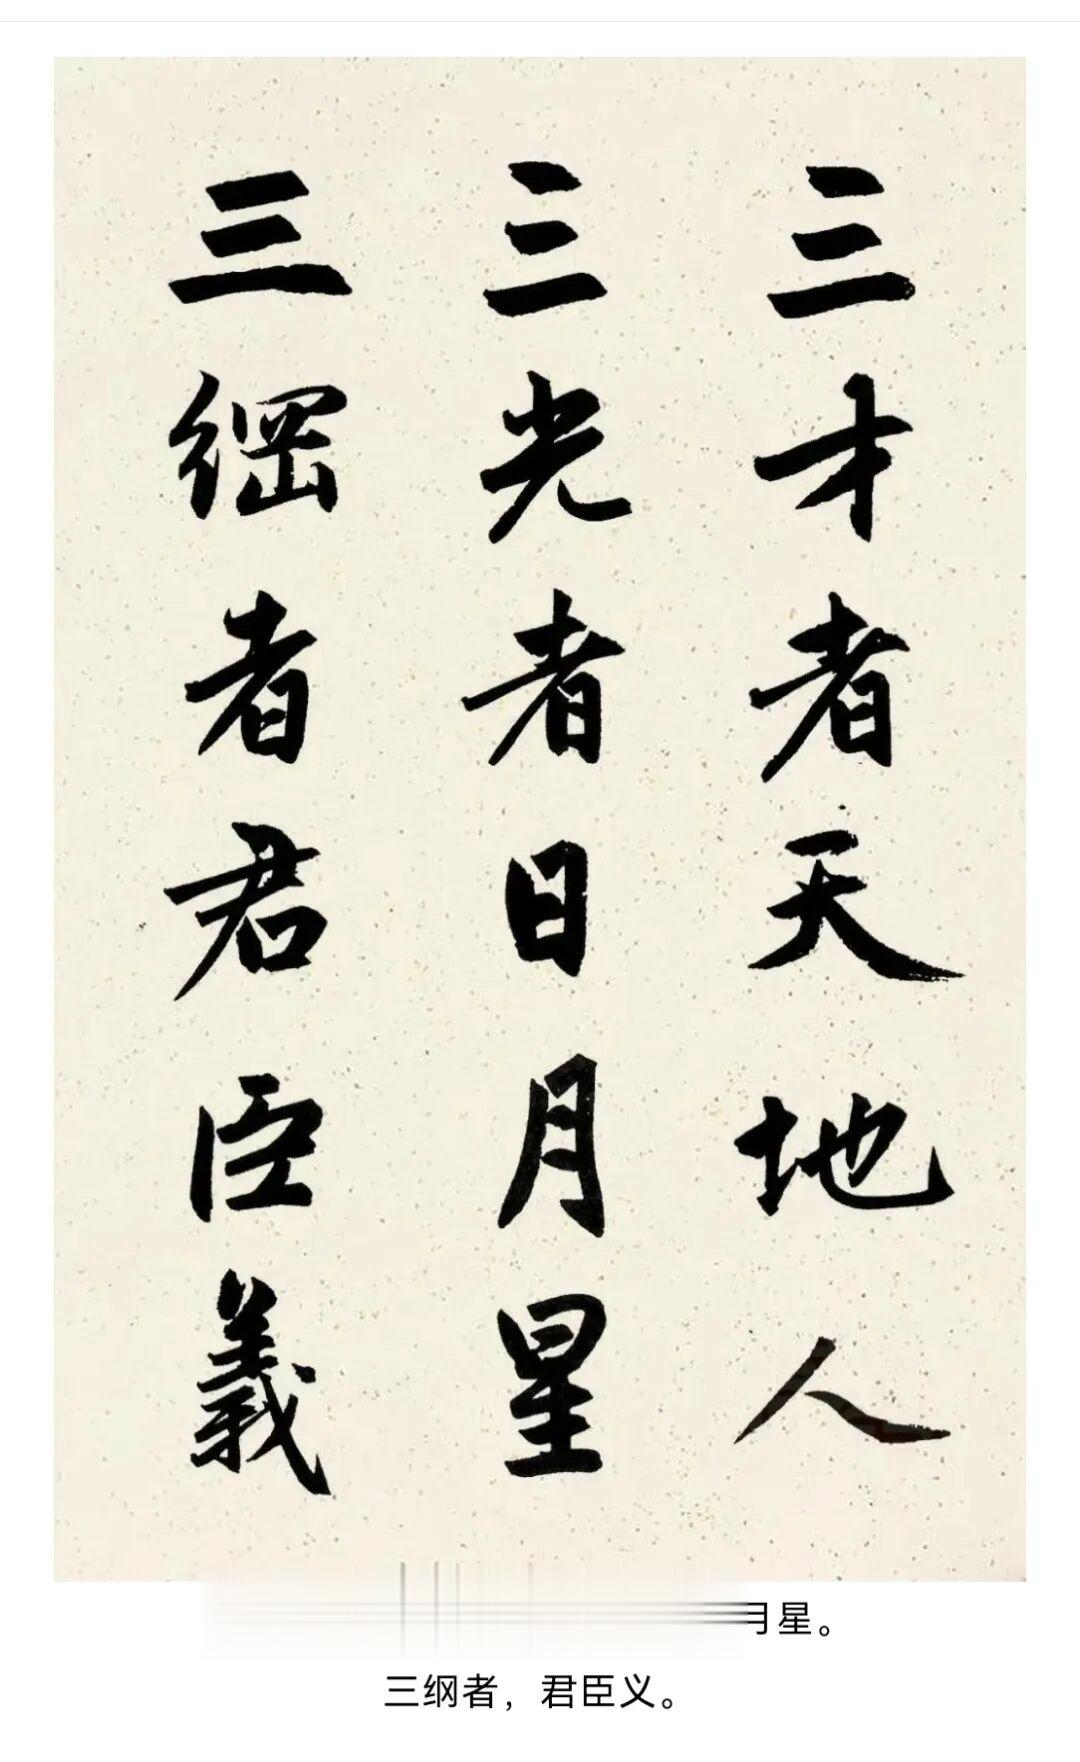 三才者天地人
三光者日月星
三綱者君臣義
月星。
三纲者，君臣义。